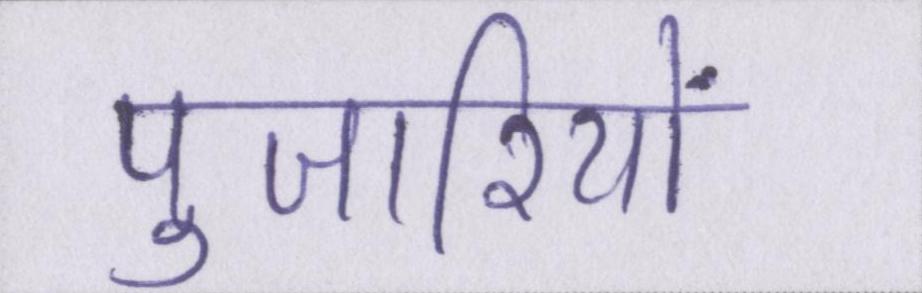 पुजारियों